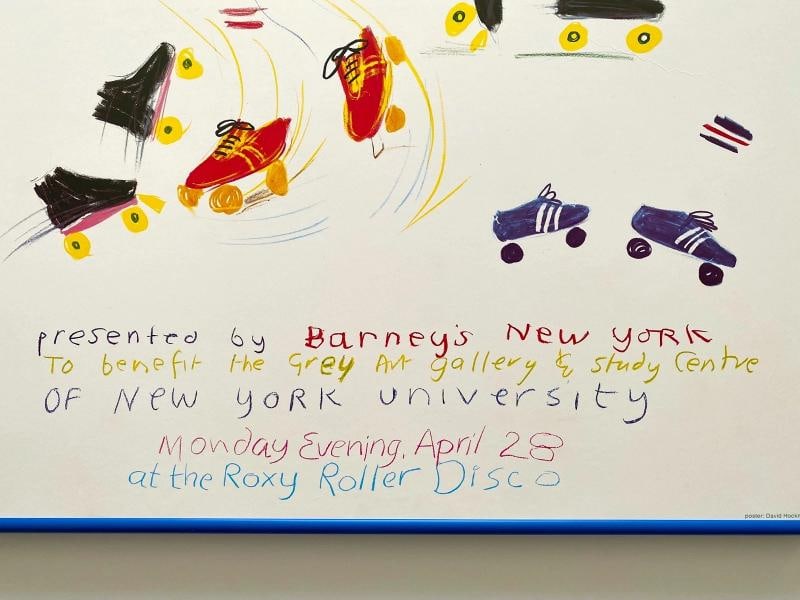 presented by Barney's New York
To benefit the Grey Art gallery & study Centre
OF New york university
Monday Evening, April 28
at the Roxy Roller Disco
poster: David Hockn